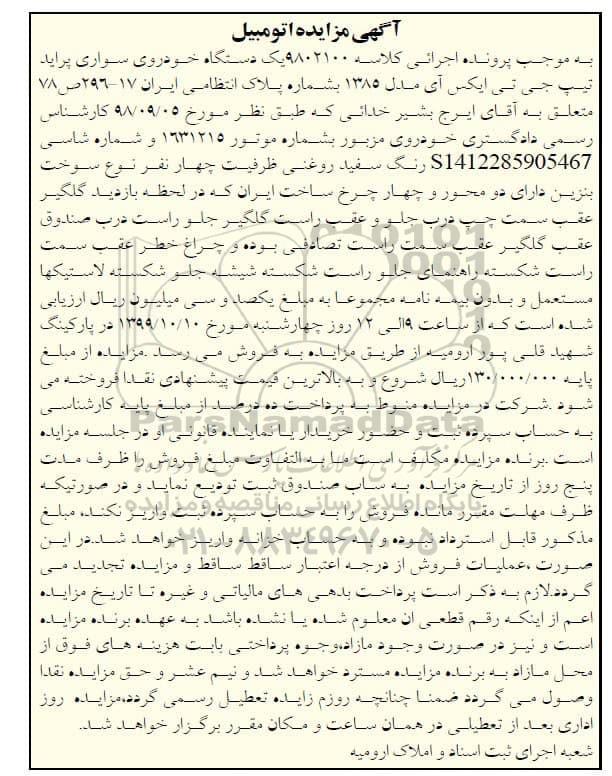 آگهی مزایده اتومبیل
به موجب پرونده اجرائی کلاسه ۹۸۰۲۱۰۰یک دستگاه خودروی سواری پراید
تیپ جی تی ایکس آی مدل ۱۳۸۵ بشماره پلاک انتظامی ایران ۱۷-۲۹۶ص۷۸
متعلق به آقای ایرج بشیر خدائی که طبق نظر مورخ ۹۸/۰۹/۰۵ کارشناس
رسمی دادگستری خودروی مزبور بشماره موتور ۱۶۳۱۲۱۵ و شماره شاسی
S1412285905467 رنگ سفید روغنی ظرفیت چهار نفر نوع سوخت
بنزین دارای دو محور و چهار چرخ ساخت ایران که در لحظه بازدید گلگیر
عقب سمت چپ درب جلو و عقب راست گلگیر جلو راست درب صندوق
عقب گلگیر عقب سمت راست تصادفی بوده و چراغ خطر عقب سمت
راست شکسته راهنمای جلو راست شکسته شیشه جلو شکسته لاستیکها
مستعمل و بدون بیمه نامه مجموعا به مبلغ یکصد و سی میلیون ریال ارزیابی
شده است که از ساعت ۹الی ۱۲ روز چهارشنبه مورخ ۱۳۹۹/۱۰/۱۰ در پارکینگ
شهید قلی پور ارومیه از طریق مزایده به فروش می رسد .مزایده از مبلغ
پایه ۱۳۰/۰۰۰/۰۰۰ریال شروع و به بالاترین قیمت پیشنهادی نقدا فروخته می
شود .شرکت در مزایده منوط به پرداخت ده درصد از مبلغ پایه کارشناسی
به حساب سپرده ثبت و حضور خریدار یا نماینده قانونی او در جلسه مزایده
است .برنده مزایده مکلف است ما به التفاوت مبلغ فروش را ظرف مدت
پنج روز از تاریخ مزایده به ساب صندوق ثبت تودیع نماید و در صورتیکه
ظرف مهلت مقرر مانده فروش را به حساب سپرده ثبت واریز نکند، مبلغ
مذکور قابل استرداد نبوده و به حساب خزانه واریز خواهد شد.در این
صورت ،عملیات فروش از درجه اعتبار ساقط ساقط و مزایده تجدید می
گردد.لازم به ذکر است پرداخت بدهی های مالیاتی و غیره تا تاریخ مزایده
اعم از اینکه رقم قطعی ان معلوم شده یا نشده باشد به عهده برنده مزایده
است و نیز در صورت وجود مازاد،وجوه پرداختی بابت هزینه های فوق از
محل مازاد به برنده مزایده مسترد خواهد شد و نیم عشر و حق مزایده نقدا
وصول می گردد ضمنا چنانچه روزم زایده تعطیل رسمی گردد،مزایده روز
اداری بعد از تعطیلی در همان ساعت و مکان مقرر برگزار خواهد شد.
شعبه اجرای ثبت اسناد و املاک ارومیه
ParsNamadData
پایگاه اطلاع رسانی مناقصه و مزایده
۰۲۱-۸۸۳۴۹۶۷۰-۵